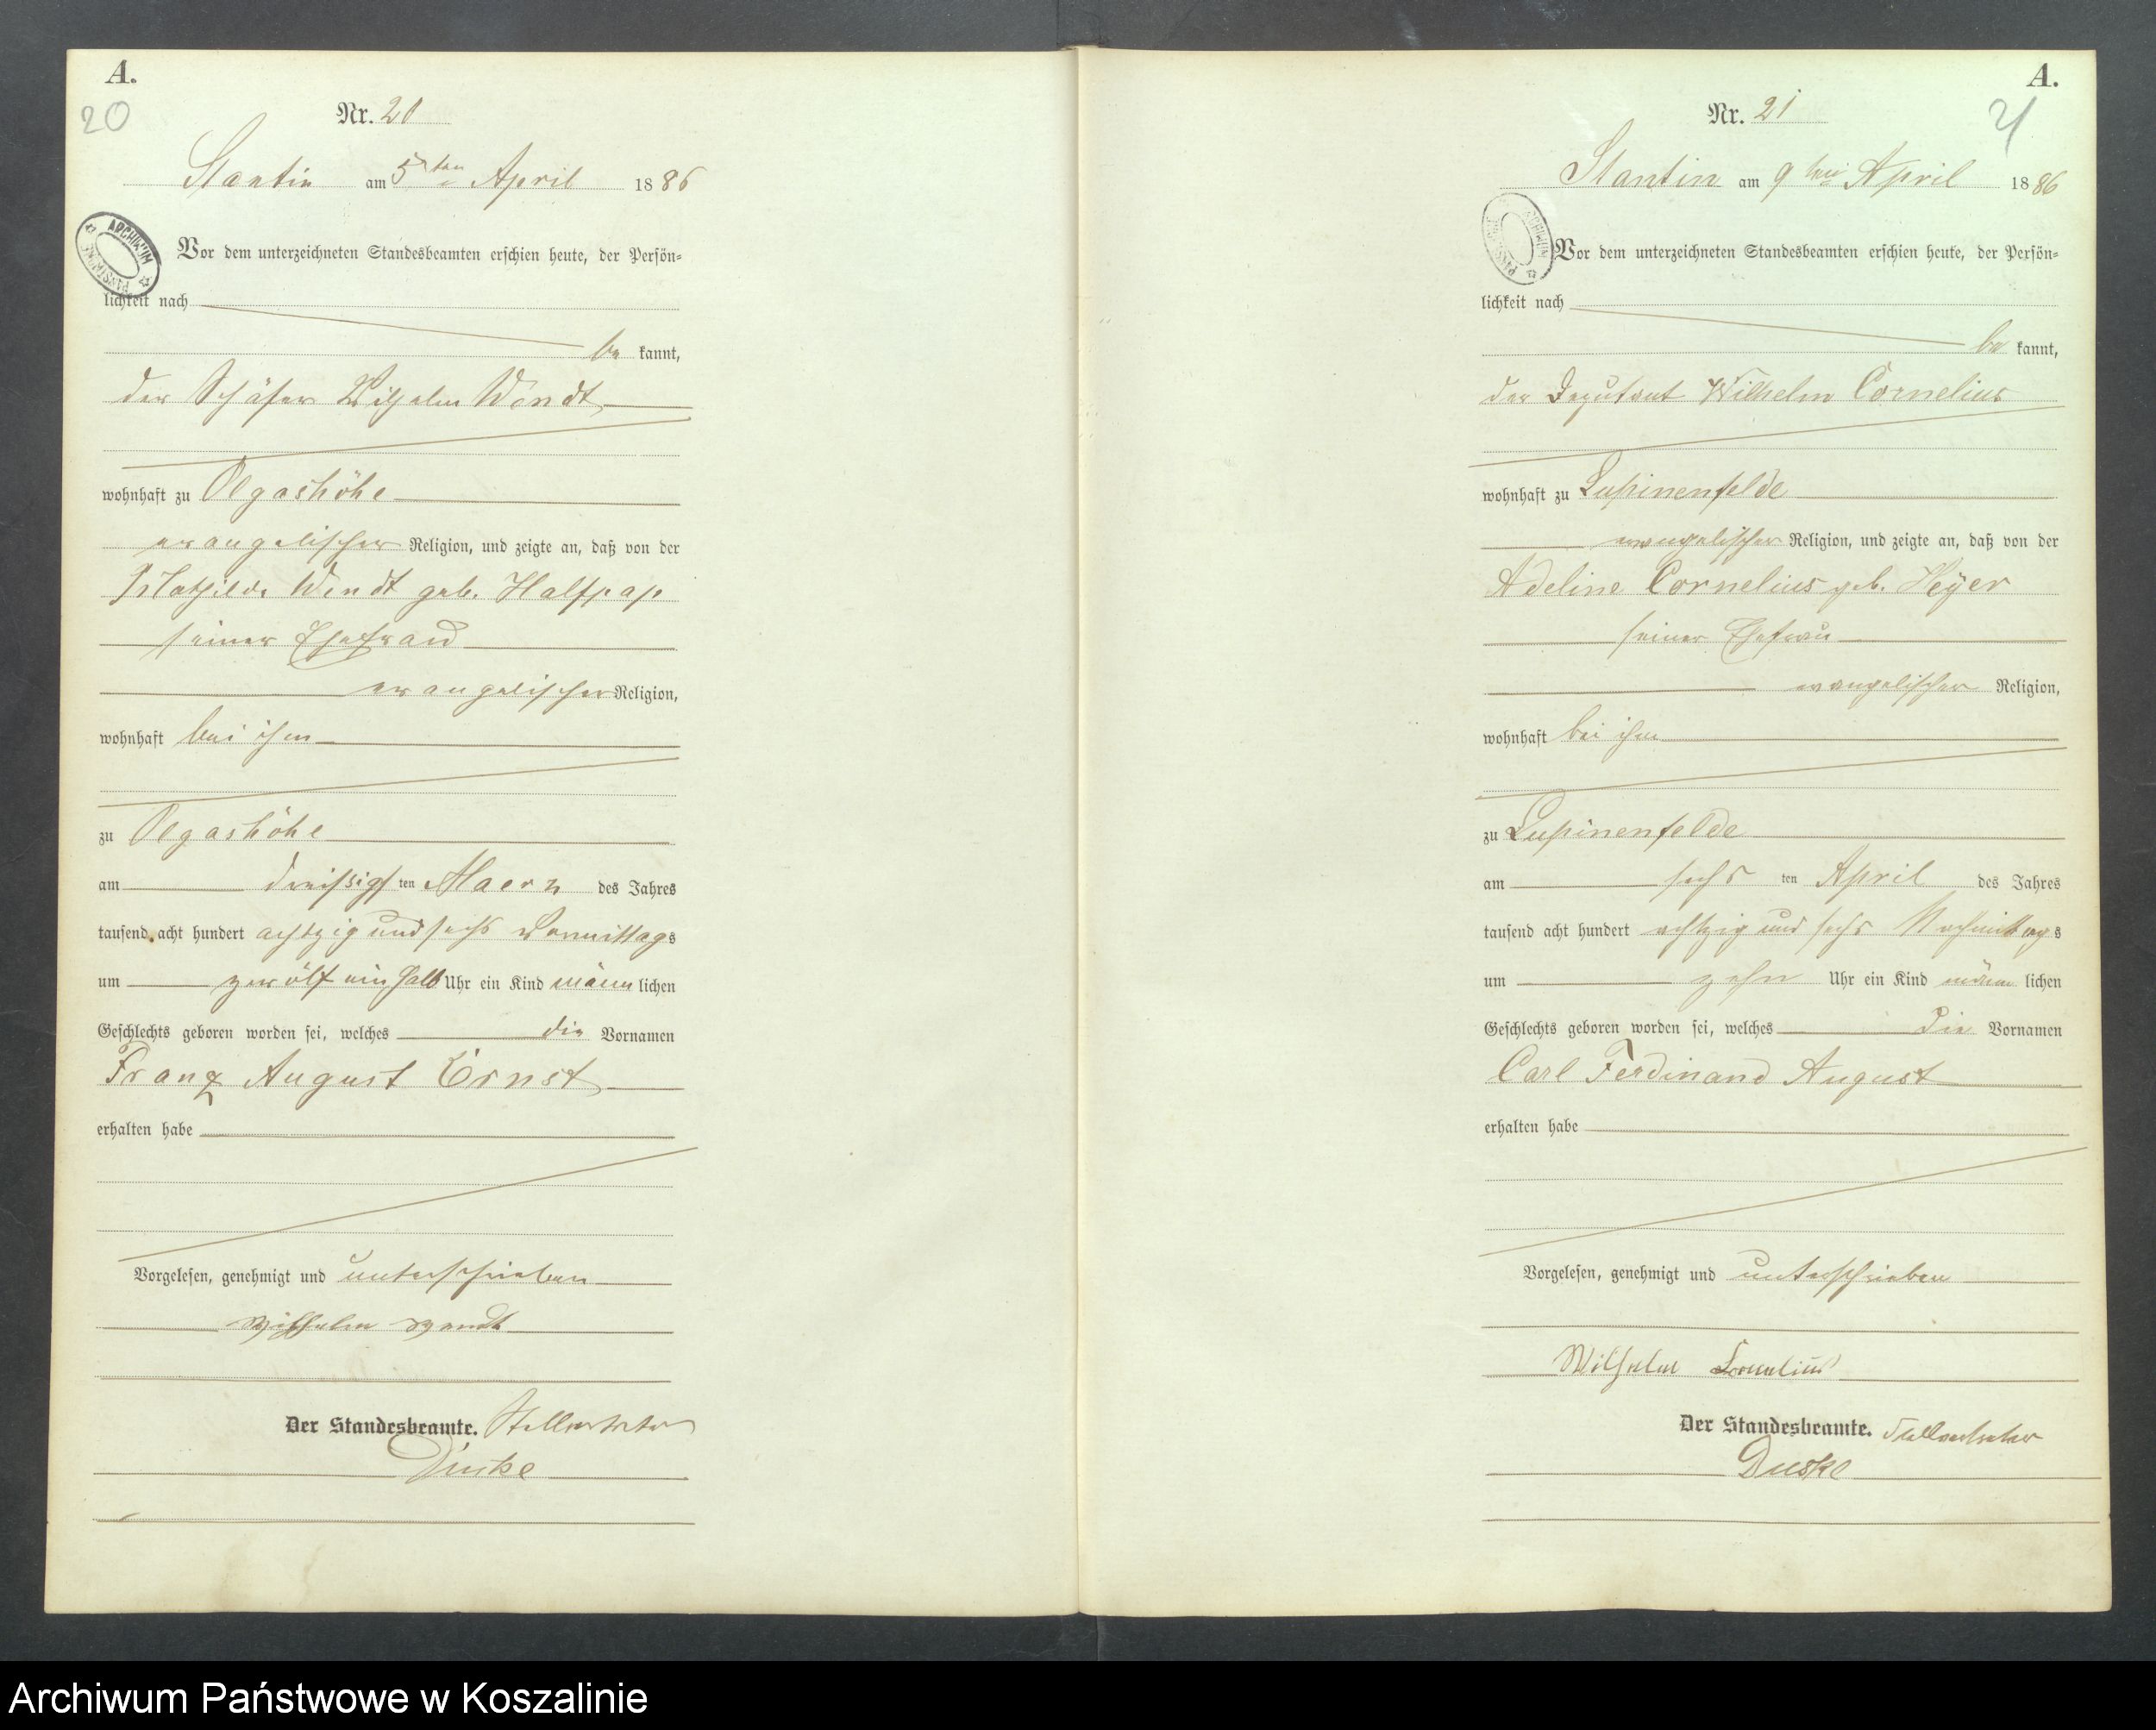 A.
20
Nr. 20
Stantin am 5ten April 1886
ARCHIWUM PAŃSTWOWE
Vor dem unterzeichneten Standesbeamten erschien heute, der Persön-
lichkeit nach
be kannt,
der Schäfer Wilhelm Wendt
wohnhaft zu Olgashöhe
evangelischer Religion, und zeigte an, daß von der
Mathilde Wendt geb. Halfpap
seiner Ehefrau
evangelischer Religion,
wohnhaft bei ihm
zu Olgashöhe
am dreißigsten Maerz des Jahres
tausend acht hundert achtzig und sechs Vormittags
um zwölf ein halb Uhr ein Kind männlichen
Geschlechts geboren worden sei, welches die Vornamen
Franz August Ernst
erhalten habe
Vorgelesen, genehmigt und unterschrieben
Wilhelm Wendt
Der Standesbeamte. Stellvertreter
Duske
A.
21
Nr. 21
Stantin am 9ten April 1886
ARCHIWUM PAŃSTWOWE
Vor dem unterzeichneten Standesbeamten erschien heute, der Persön-
lichkeit nach
be kannt,
der Deputant Wilhelm Cornelius
wohnhaft zu Lupinenfelde
evangelischer Religion, und zeigte an, daß von der
Adeline Cornelius geb. Heÿer
seiner Ehefrau
evangelischer Religion,
wohnhaft bei ihm
zu Lupinenfelde
am sechsten April des Jahres
tausend acht hundert achtzig und sechs Nachmittags
um zehn Uhr ein Kind männlichen
Geschlechts geboren worden sei, welches die Vornamen
Carl Ferdinand August
erhalten habe
Vorgelesen, genehmigt und unterschrieben
Wilhelm Cornelius
Der Standesbeamte. Stellvertreter
Duske
Archiwum Państwowe w Koszalinie